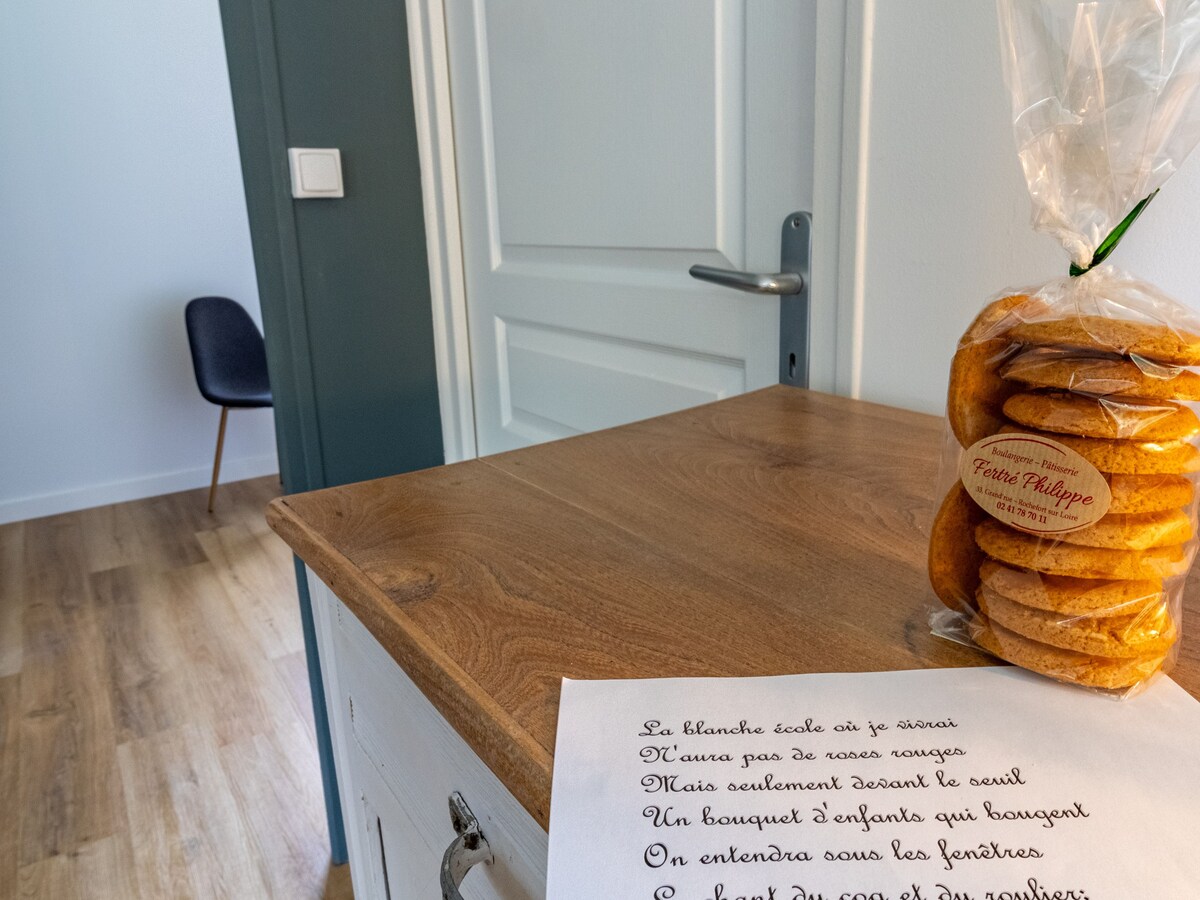 Boulangerie - Pâtisserie
Fertré Philippe
53, Grand rue - Rochefort sur Loire
02 41 78 70 11
La blanche école où je vivrai
N'aura pas de roses rouges
Mais seulement devant le seuil
Un bouquet d'enfants qui bougent
On entendra sous les fenêtres
Le chant du coq et du roulier;